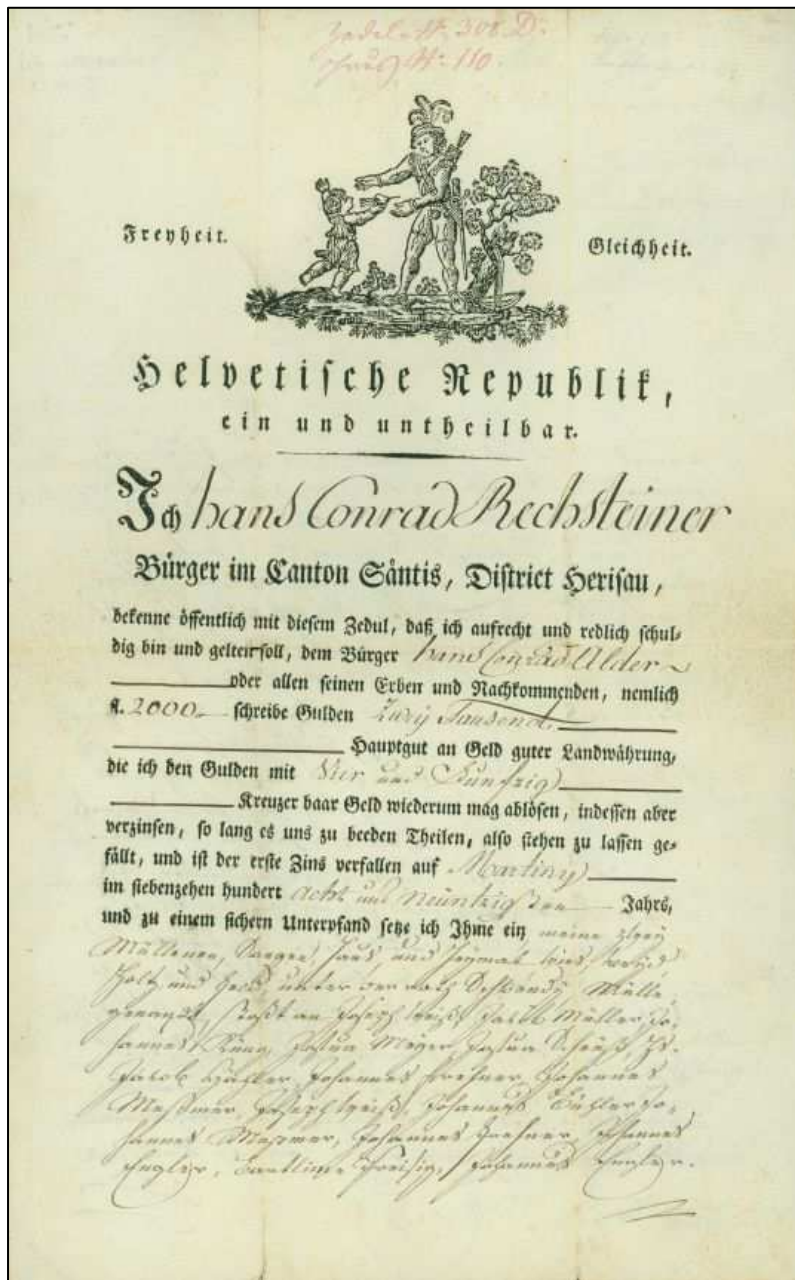 Zedel N. 308 D.
N. 110.
Freyheit.
Gleichheit.
Helvetische Republik,
ein und untheilbar.
Ich hans Conrad Rechsteiner
Bürger im Canton Säntis, District Herisau,
bekenne öffentlich mit diesem Zedul, daß ich aufrecht und redlich schul-
dig bin und gelten soll, dem Bürger hans Conrad Alder
oder allen seinen Erben und Nachkommenden, nemlich
fl. 2000 schreibe Gulden Zwey Tausend
Hauptgut an Geld guter Landwährung,
die ich den Gulden mit Vier und Funfzig
Kreuzer baar Geld wiederum mag ablösen, indessen aber
verzinsen, so lang es uns zu beeden Theilen, also stehen zu lassen ge-
fällt, und ist der erste Zins verfallen auf Martiny
im siebenzehen hundert acht und neüntzigsten Jahrs,
und zu einem sichern Unterpfand setze ich Ihme ein meine zwey
Müllenen, Haus und Heymat
Holtz und unter der Mülle
genandt, stoßt an Joseph Jacob Müller Jo-
hannes Küng, Josua Meyer, Josua
Jacob Johannes Johannes
Meßmer, Joseph Johannes Jo-
hannes Meßmer, Johannes Johannes
Engler, Johannes Engler.